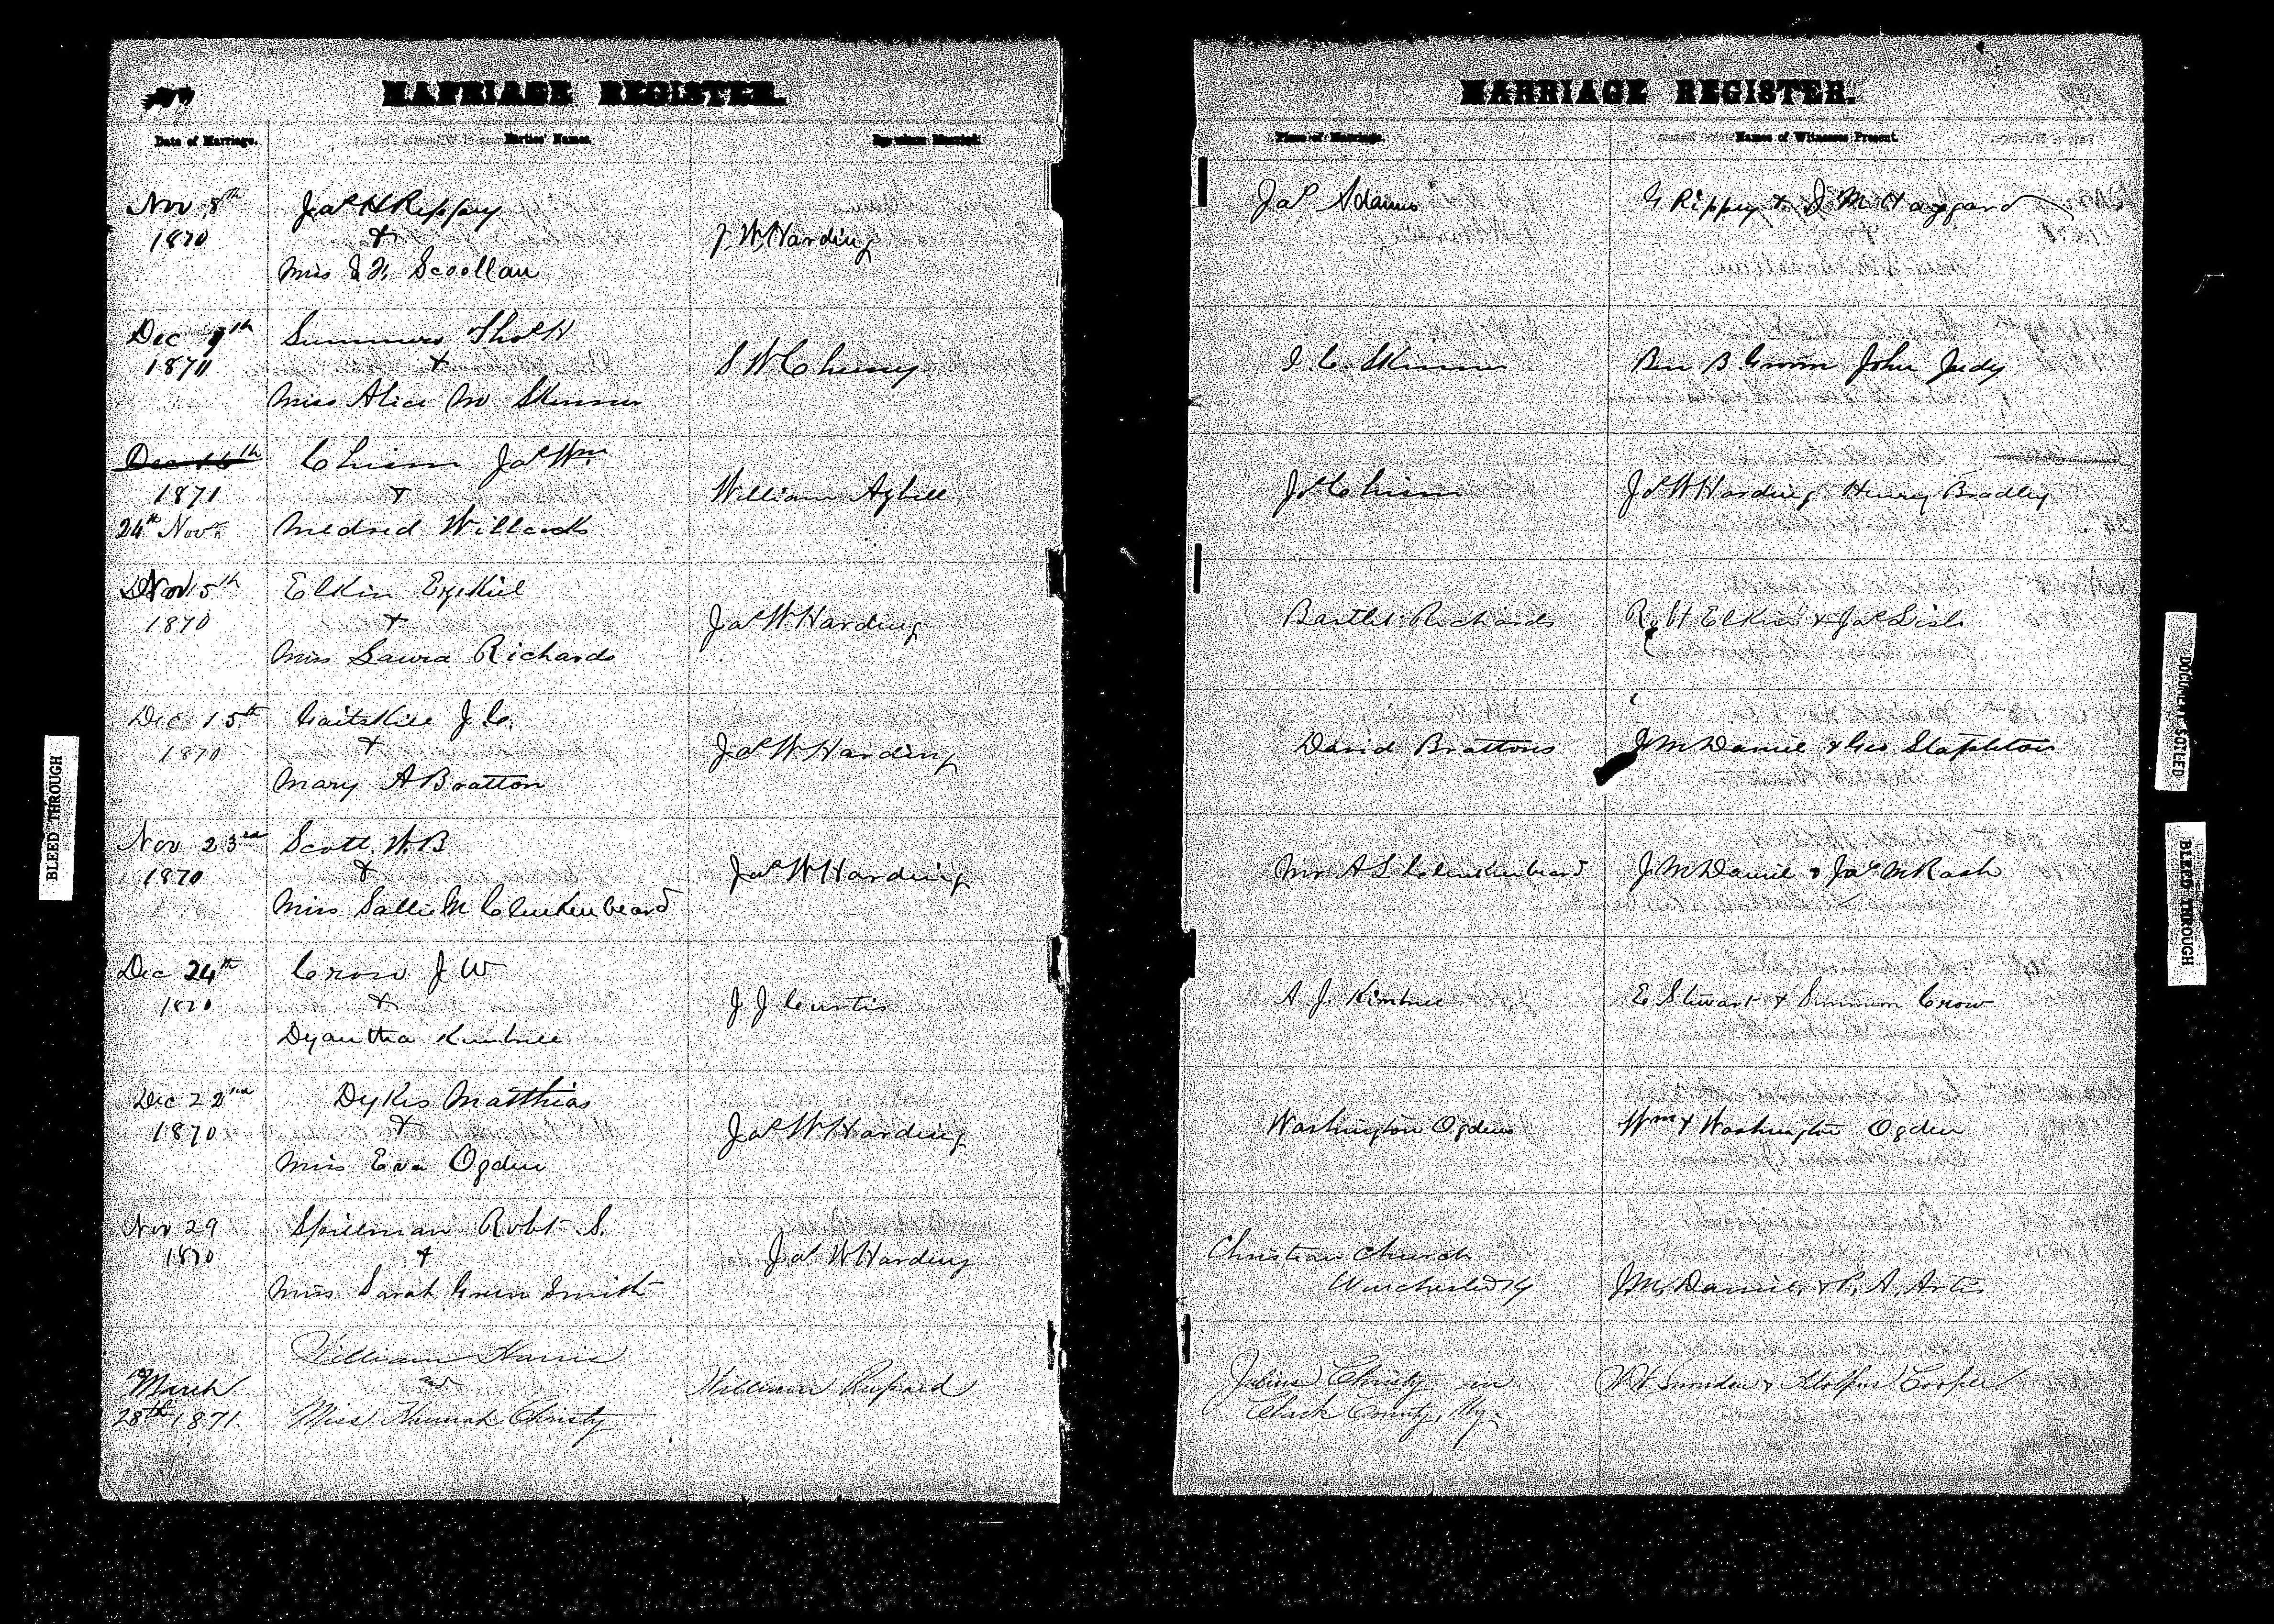 MARRIAGE REGISTER.
Date of Marriage. Parties' Names. By whom Married.
Nov 8th
1870
Jas H Rippey
&
Miss
J W Harding
Dec
1870
Summers Thos H
&
Miss Alice M Skinner
S W Cheney
Dec 15th
1871
24th Nov
Chism Jas Wm
&
Medred Willcocks
William Azbill
Nov 15th
1870
Elkin Ezekiel
&
Miss Laura Richards
Jas W Harding
Dec 15th
1870
Gaitskill J C.
&
Mary A Bratton
Jas W Harding
Nov 23rd
1870
Scott W. B
&
Miss Sallie M Clinkenbeard
Jas W Harding
Dec 24th
1870
Crow J W
&
Dyantha
J J Curtis
Dec 22nd
1870
Dykes Matthias
&
Miss Eva Ogden
Jas W Harding
Nov 29
1870
Spillman Robt S.
&
Miss Sarah Green Smith
Jas W Harding
March
28th 1871
William Harris
and
Miss Hannah Christy
William Rupard
MARRIAGE REGISTER.
Place of Marriage. Names of Witnesses Present.
Jas Adams
G Rippey & J M Haggard
I. C. Skinner
Ben B. Groom John Judy
Jas Chism
Jas W Harding Henry Bradley
Bartlet Richards
Robt Elkin & Jas Lisle
David Brattons
J M Daniel & Geo Stapleton
Mr A S Clinkenbeard
J M Daniel & Jas M Rash
A. J.
E Stewart & Crow
Washington Ogdens
Wm & Washington Ogden
Christian Church
Winchester Ky
J. M. Daniel, & R. A.
Julius Christy in
Clark County, Ky.
& Cooper
BLEED THROUGH
DOCUMENT SOILED
BLEED THROUGH